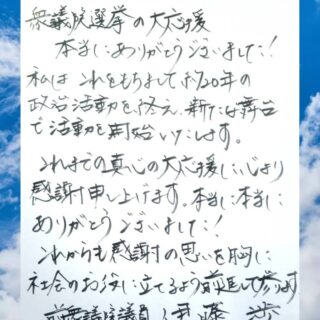 衆議院選挙の大応援
本当にありがとうございました!
私は これをもちまして 約20年の
政治活動を終え、新たな舞台
で活動を開始いたします。
これまでの真心の大応援に心より
感謝申し上げます。本当に本当に
ありがとうございました!
これからも感謝の思いを胸に
社会のお役に立てるよう前進して参ります
前衆議院議員 伊藤 渉